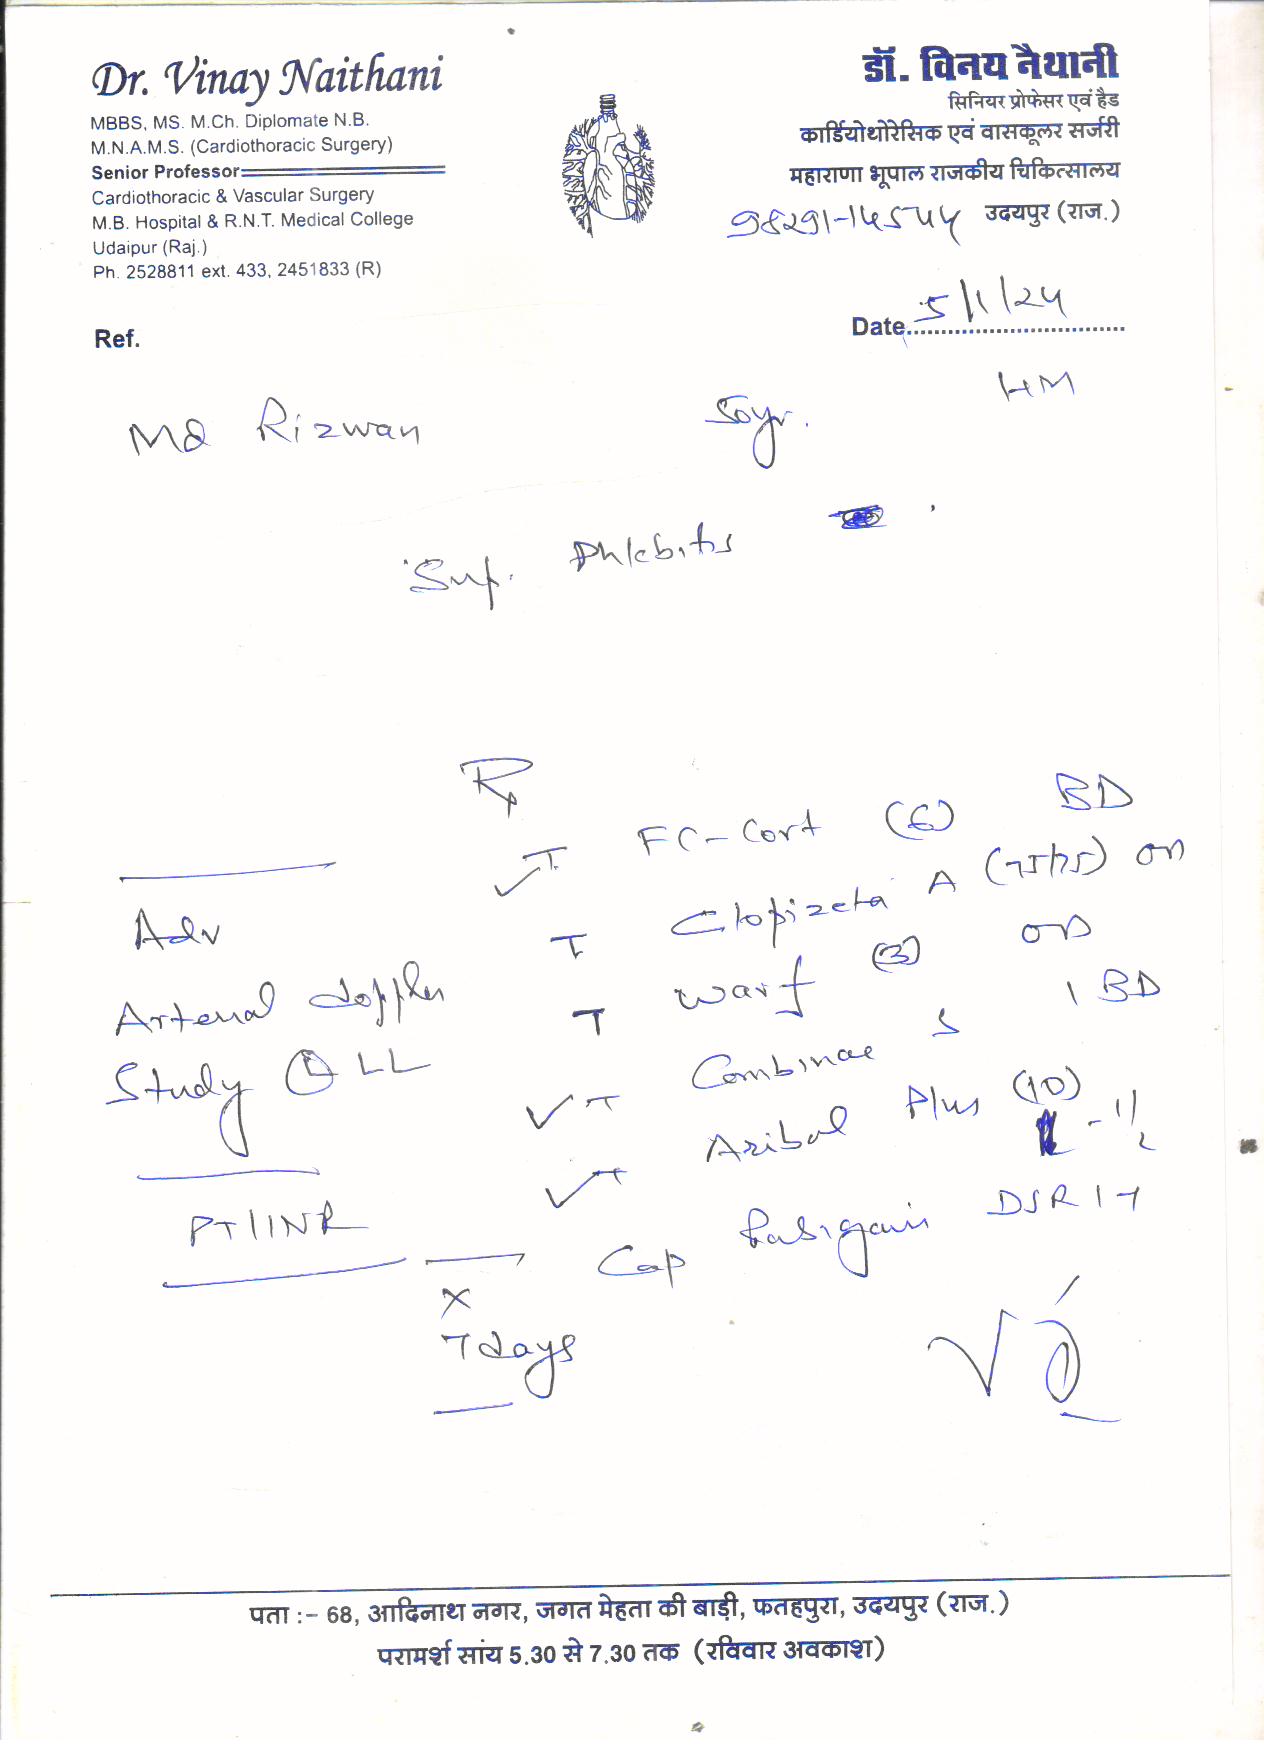 Dr. Vinay Naithani
MBBS, MS. M.Ch. Diplomate N.B.
M.N.A.M.S. (Cardiothoracic Surgery)
Senior Professor
Cardiothoracic & Vascular Surgery
M.B. Hospital & R.N.T. Medical College
Udaipur (Raj.)
Ph. 2528811 ext. 433, 2451833 (R)
डॉ. विनय नैथानी
सिनियर प्रोफेसर एवं हैड
कार्डियोथोरेसिक एवं वासकूलर सर्जरी
महाराणा भूपाल राजकीय चिकित्सालय
98291-14544 उदयपुर (राज.)
Ref.
Date 5/1/24
HM
Md Rizwan 50yr.
Sup. Phlebitis
Rx
T FC-Cort (6) BD
T Clopizeta A (75/75) OD
T Warf (3) OD
T Combinae S 1 BD
T Plus (10) - 1/2
Cap DSR
x
7 days
Adv
Arterial doppler
Study (L) LL
PT/INR
पता :- 68, आदिनाथ नगर, जगत मेहता की बाड़ी, फतहपुरा, उदयपुर (राज.)
परामर्श सांय 5.30 से 7.30 तक (रविवार अवकाश)